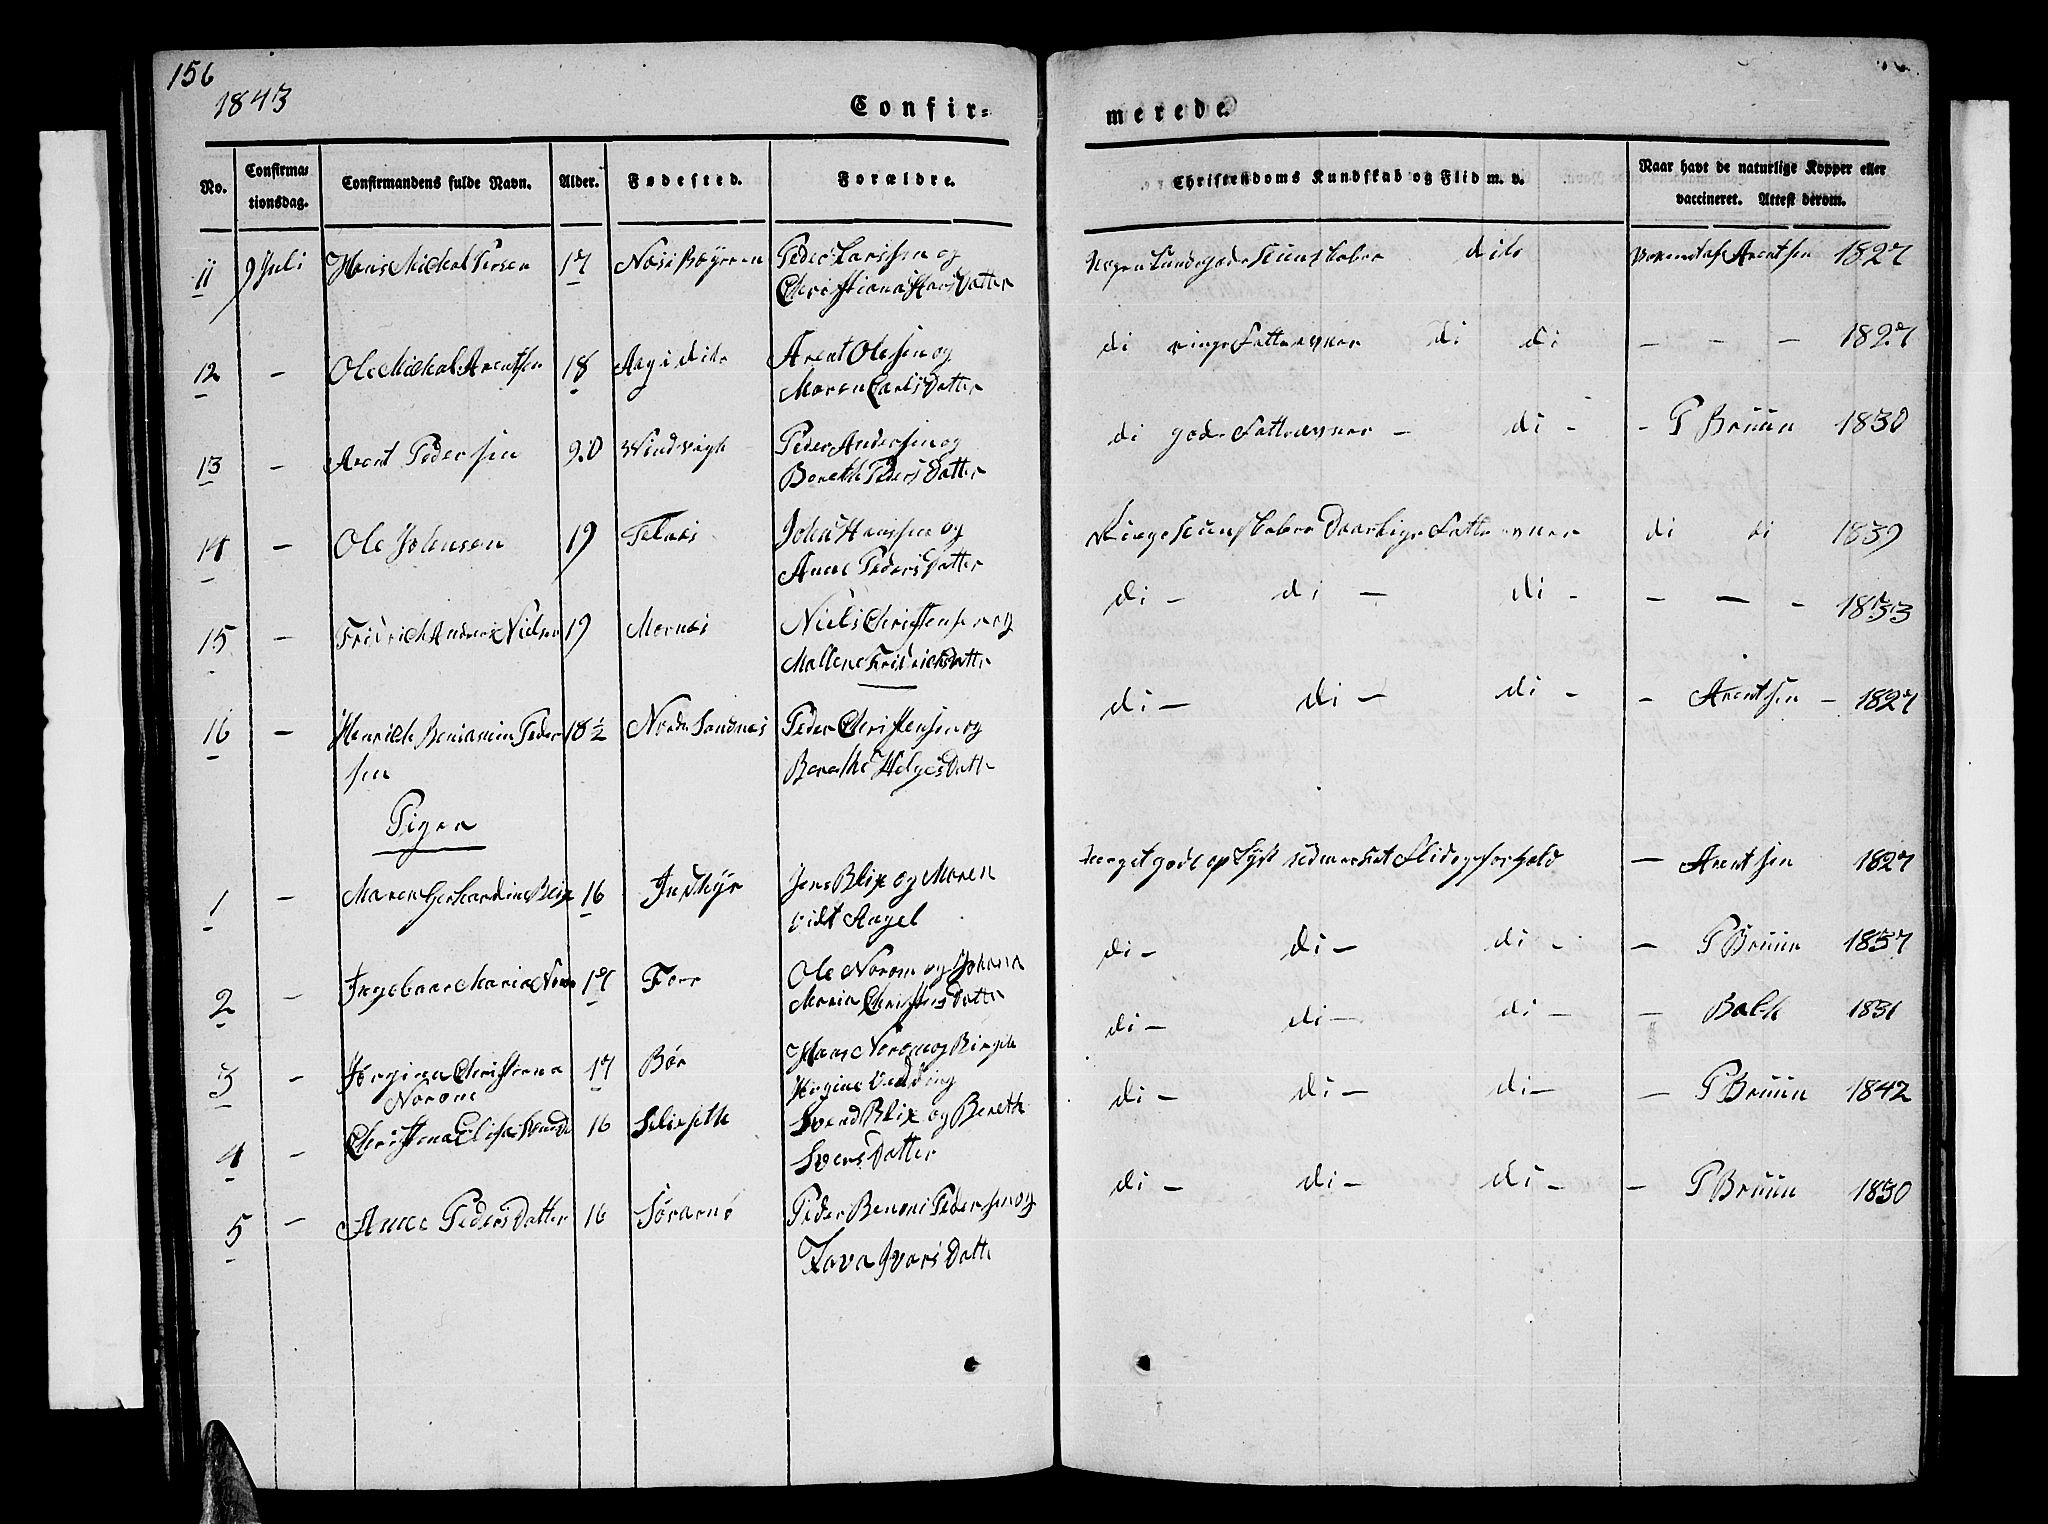 156
1843
Confir=
merede.
No.
Confirma=
tionsdag.
Confirmandens fulde Navn.
Alder.
Fødested.
Forældre.
Christendoms Kundskab og Flid m. v.
Naar havt de naturlige Kopper eller
vaccineret. Attest derom.
11 9 Juli Hans Michal Persen 17 Peder Larssen og
Christiana Hans Datter
gode Kunskaber dito Arentsen 1827
12 – Ole Michal Arentsen 18 dito Arent Olessen og
Maren Carls Datter
di ringe Fatteevner di di – – – 1827
13 – Arent Pedersen 20 Peder Andersen og
Bereth Peders Datter
di gode Fatteevner – di – – P Bruun 1830
14 – Ole Johnsen 19 Telnes John Hanssen og
Anne Peders Datter
Ringe Kunskaber Daarlige Fatteevner di di 1839
15 – Fridrich Andreas Nielsen 19 Mornes Niels Christensen og
Mallene Fridrichsdatte
di – di – di – – – – 1833
16 – Henrich Beniamin Peder 18½ Nordre Sandnes Peder Christensen og
sen
Berethe Helges Datte
di – di – di – – Arentsen – 1827
Piger
1 – Maren Gerhardine Blix 16 Indhyr Jens Blix og Maren
vidt Angel
Meget gode op Flid og forhold – Arentsen 1827
2 – Ingeboer Maria 17 Fore Ole Norum og Johana
Maria Christens Datte
di – di – di – – P Bruun 1837
3 – Jørgina Christena 17 Bør Hans Norum og Birgete
Norum
di – di – di – – Balk 1831
4 – Christena Elisa 16 Selsseth Svend Blix og Bereth
Svens Datter
di – di – di – – P Bruun 1842
5 – Anne Peders Datter 16 Sørarnø Peder Benoni Pedersen og
Ivars Datte
di – di – di – – P Bruun 1830